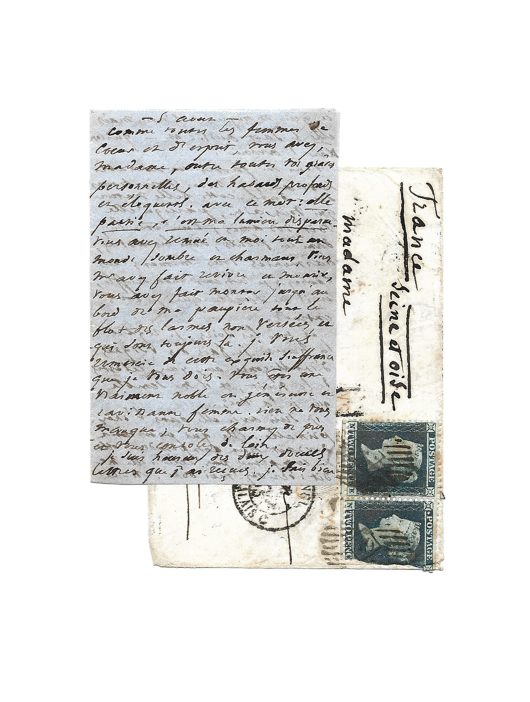 - 5 avril -
comme toutes les femmes de
coeur et d'esprit, vous avez,
madame, outre toutes vos grâces
personnelles, des hasards profonds
et éloquents. avec ce mot: elle
partie, l'ombre disparut
vous avez remué en moi tout un
monde sombre et charmant. Vous
m'avez fait revivre et mourir,
vous avez fait monter jusqu'au
bord de ma paupière tout le
flot des larmes non versées, et
qui sont toujours là. je vous
remercie de cette exquise souffrance
que je vous dois. Vous êtes une
vraiment noble et généreuse et
femme. rien ne vous
manque, vous charmez de près
et vous consolez de loin.
je suis heureux des deux
lettres que j'ai reçues. je
France
Seine et oise
madame
POSTAGE
TWO PENCE
POSTAGE
TWO PENCE
CALAIS